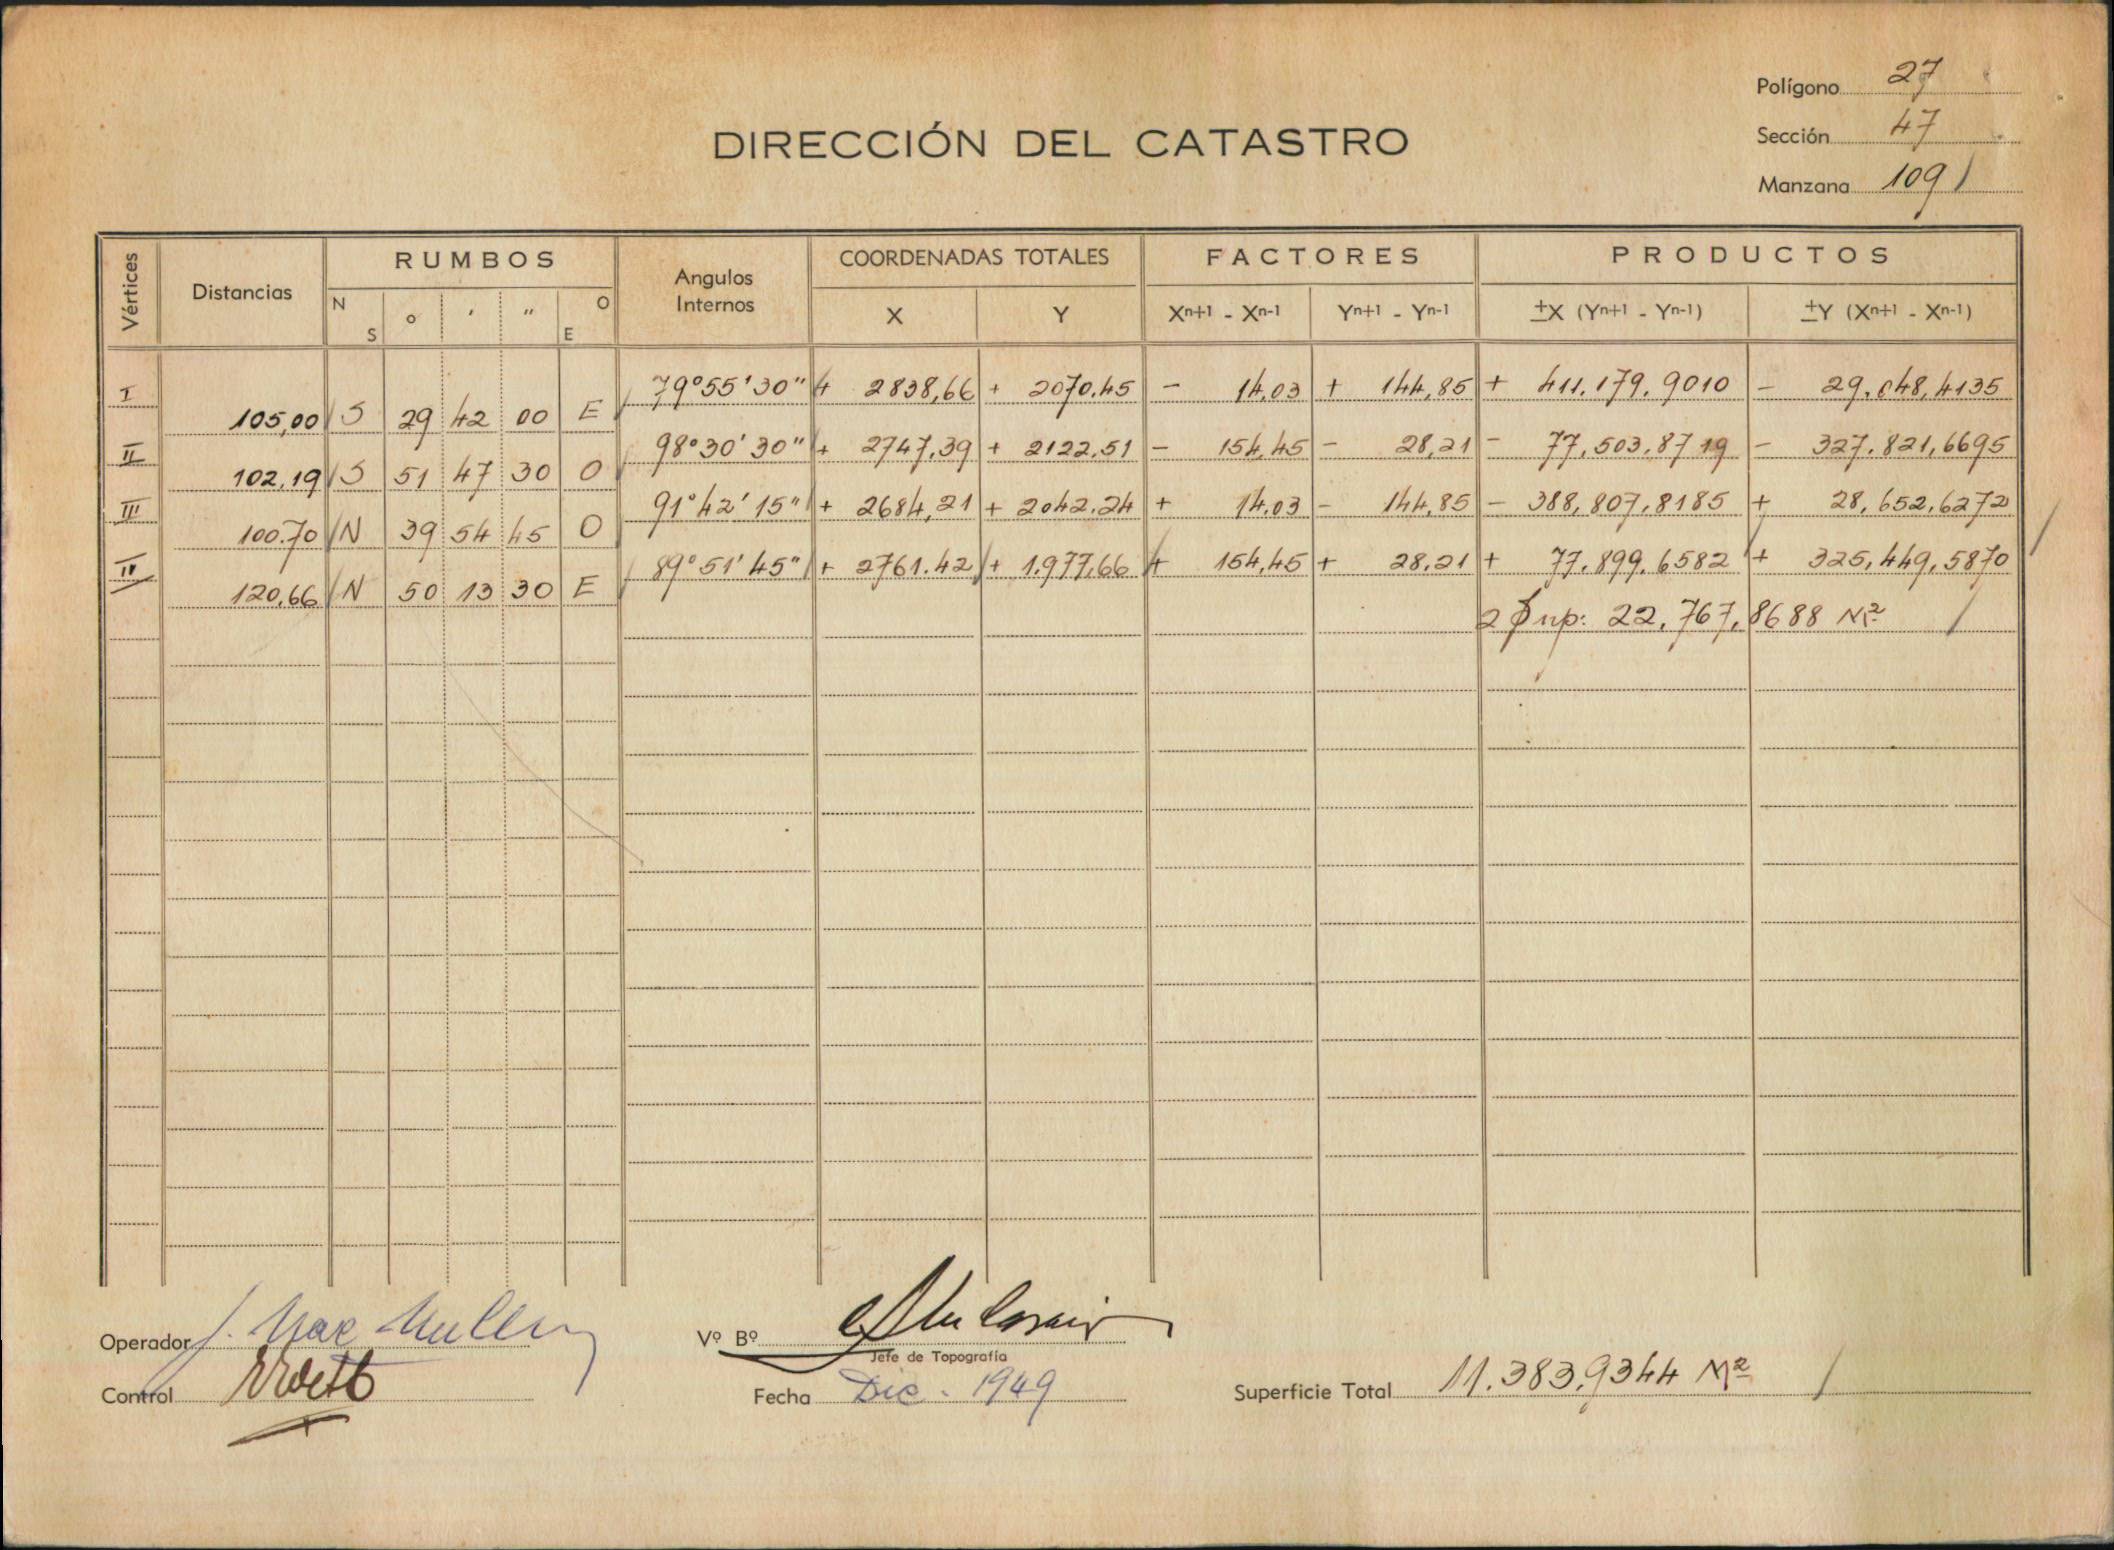 Polígono 27
DIRECCIÓN DEL CATASTRO
Sección 47
Manzana 109
Vértices Distancias RUMBOS Angulos Internos COORDENADAS TOTALES FACTORES PRODUCTOS
N S ° ' " O E X Y Xn+1 - Xn-1 Yn+1 - Yn-1 ±X (Yn+1 - Yn-1) ±Y (Xn+1 - Xn-1)
I 79°55'30" + 2838,66 + 2070.45 - 14,03 + 144,85 + 411.179.9010 - 29.048,4135
105,00 S 29 42 00 E
II 98°30'30" + 2747,39 + 2122.51 - 154,45 - 28,21 - 77.503.8719 - 327.821,6695
102,19 S 51 47 30 O
III 91°42'15" + 2684,21 + 2042.24 + 14.03 - 144,85 - 388,807,8185 + 28,652,6272
100.70 N 39 54 45 O
IV 89°51'45" + 2761.42 + 1.977,66 + 154,45 + 28.21 + 77.899.6582 + 325,449,5870
120,66 N 50 13 30 E
2 Sup: 22.767,8688 M²
Operador J. Mac Mullen
Vº Bº
Jefe de Topografía
Control
Fecha Dic. 1949
Superficie Total 11.383,9344 M²